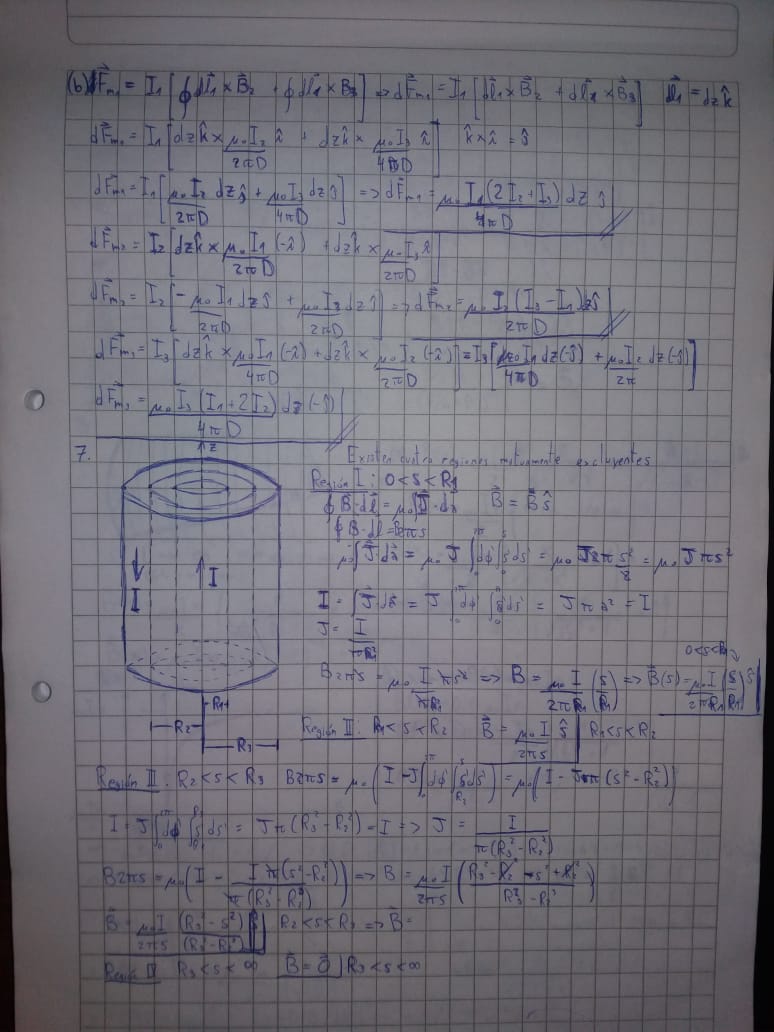 (b) dF⃗m₁ = I₁ [∮dl⃗₁ × B⃗₂ + ∮dl⃗₁ × B⃗₃] => dF⃗m₁ = I₁ [dl⃗₁ × B⃗₂ + dl⃗₁ × B⃗₃] dl⃗₁ = dz k̂
dF⃗m₁ = I₁ [dz k̂ × μ₀I₂/2πD î + dz k̂ × μ₀I₃/4πD î] k̂ × î = ĵ
dF⃗m₁ = I₁ [μ₀I₂/2πD dz ĵ + μ₀I₃/4πD dz ĵ] => dF⃗m₁ = μ₀I₁(2I₂+I₃)/4πD dz ĵ
dF⃗m₂ = I₂ [dz k̂ × μ₀I₁/2πD (-î) + dz k̂ × μ₀I₃/2πD î]
dF⃗m₂ = I₂ [-μ₀I₁/2πD dz ĵ + μ₀I₃/2πD dz ĵ] => dF⃗m₂ = μ₀I₂(I₃-I₁)/2πD dz ĵ
dF⃗m₃ = I₃ [dz k̂ × μ₀I₁/4πD (-î) + dz k̂ × μ₀I₂/2πD (-î)] = I₃ [μ₀I₁/4πD dz(-ĵ) + μ₀I₂/2π dz(-ĵ)]
dF⃗m₃ = μ₀I₃(I₁+2I₂)/4πD dz(-ĵ)
7.
z
Existen cuatro regiones mutuamente excluyentes
Región I: 0<s<R₁
∮B⃗·dl⃗ = μ₀∫J⃗·da B⃗ = B ŝ
∮B·dl = B2πs
μ₀∫J⃗·da⃗ = μ₀J∫dφ∫s ds = μ₀J2π s²/2 = μ₀Jπs²
I
I
I = ∫J⃗·da⃗ = J∫dφ∫s ds = JπR₁² = I
J = I/πR₁²
0<s<R₁
B2πs = μ₀ I/πR₁² πs² => B = μ₀I/2πR₁ (s/R₁) => B⃗(s) = μ₀I/2πR₁ (s/R₁) ŝ
R₁
R₂
R₃
Región II: R₁<s<R₂ B⃗ = μ₀I/2πs ŝ R₁<s<R₂
Región III: R₂<s<R₃ B2πs = μ₀(I - J∫dφ∫s ds) = μ₀(I - Jπ(s²-R₂²))
I = J∫dφ∫s ds = Jπ(R₃²-R₂²) = I => J = I/π(R₃²-R₂²)
B2πs = μ₀(I - Iπ(s²-R₂²)/π(R₃²-R₂²)) => B = μ₀I/2πs (R₃²-R₂²-s²+R₂²/R₃²-R₂²)
B⃗ = μ₀I/2πs (R₃²-s²)/(R₃²-R₂²) ŝ R₂<s<R₃ => B⃗ =
Región IV R₃<s<∞ B⃗ = 0⃗ R₃<s<∞